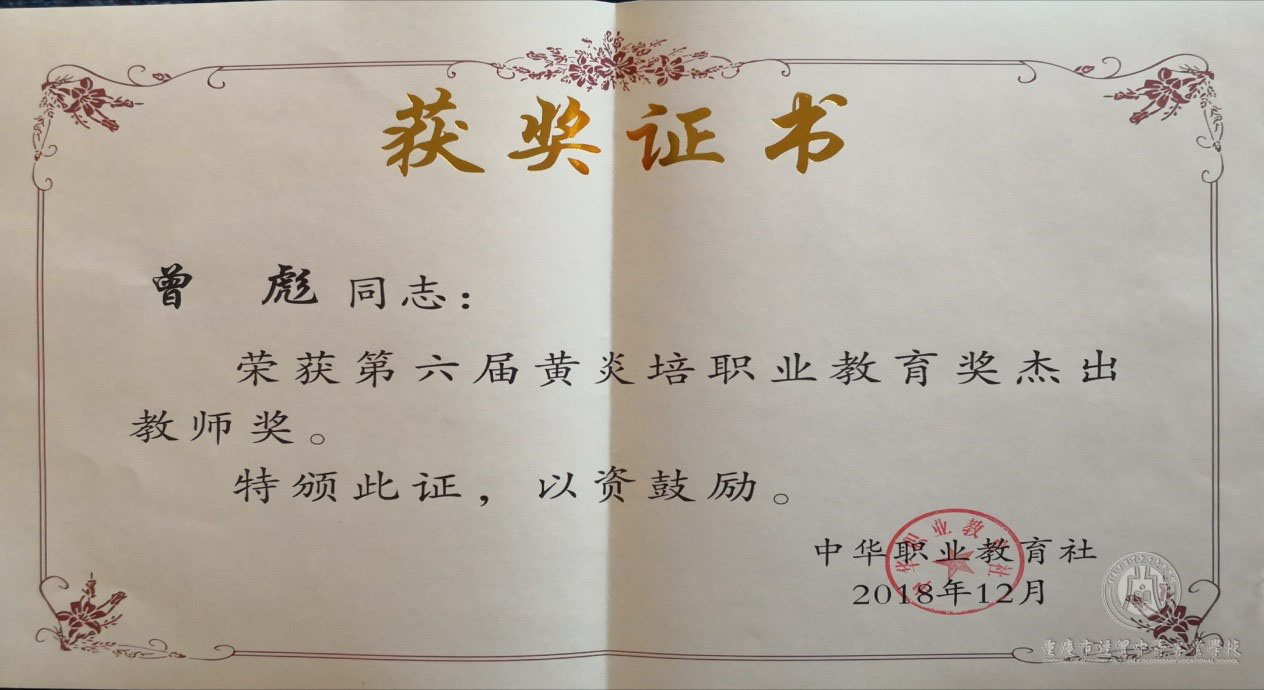 获奖证书
曾 彪 同志：
荣获第六届黄炎培职业教育奖杰出
教师奖。
特颁此证，以资鼓励。
中华职业教育社
2018年12月
中华职业教育社
重庆市经贸中等专业学校